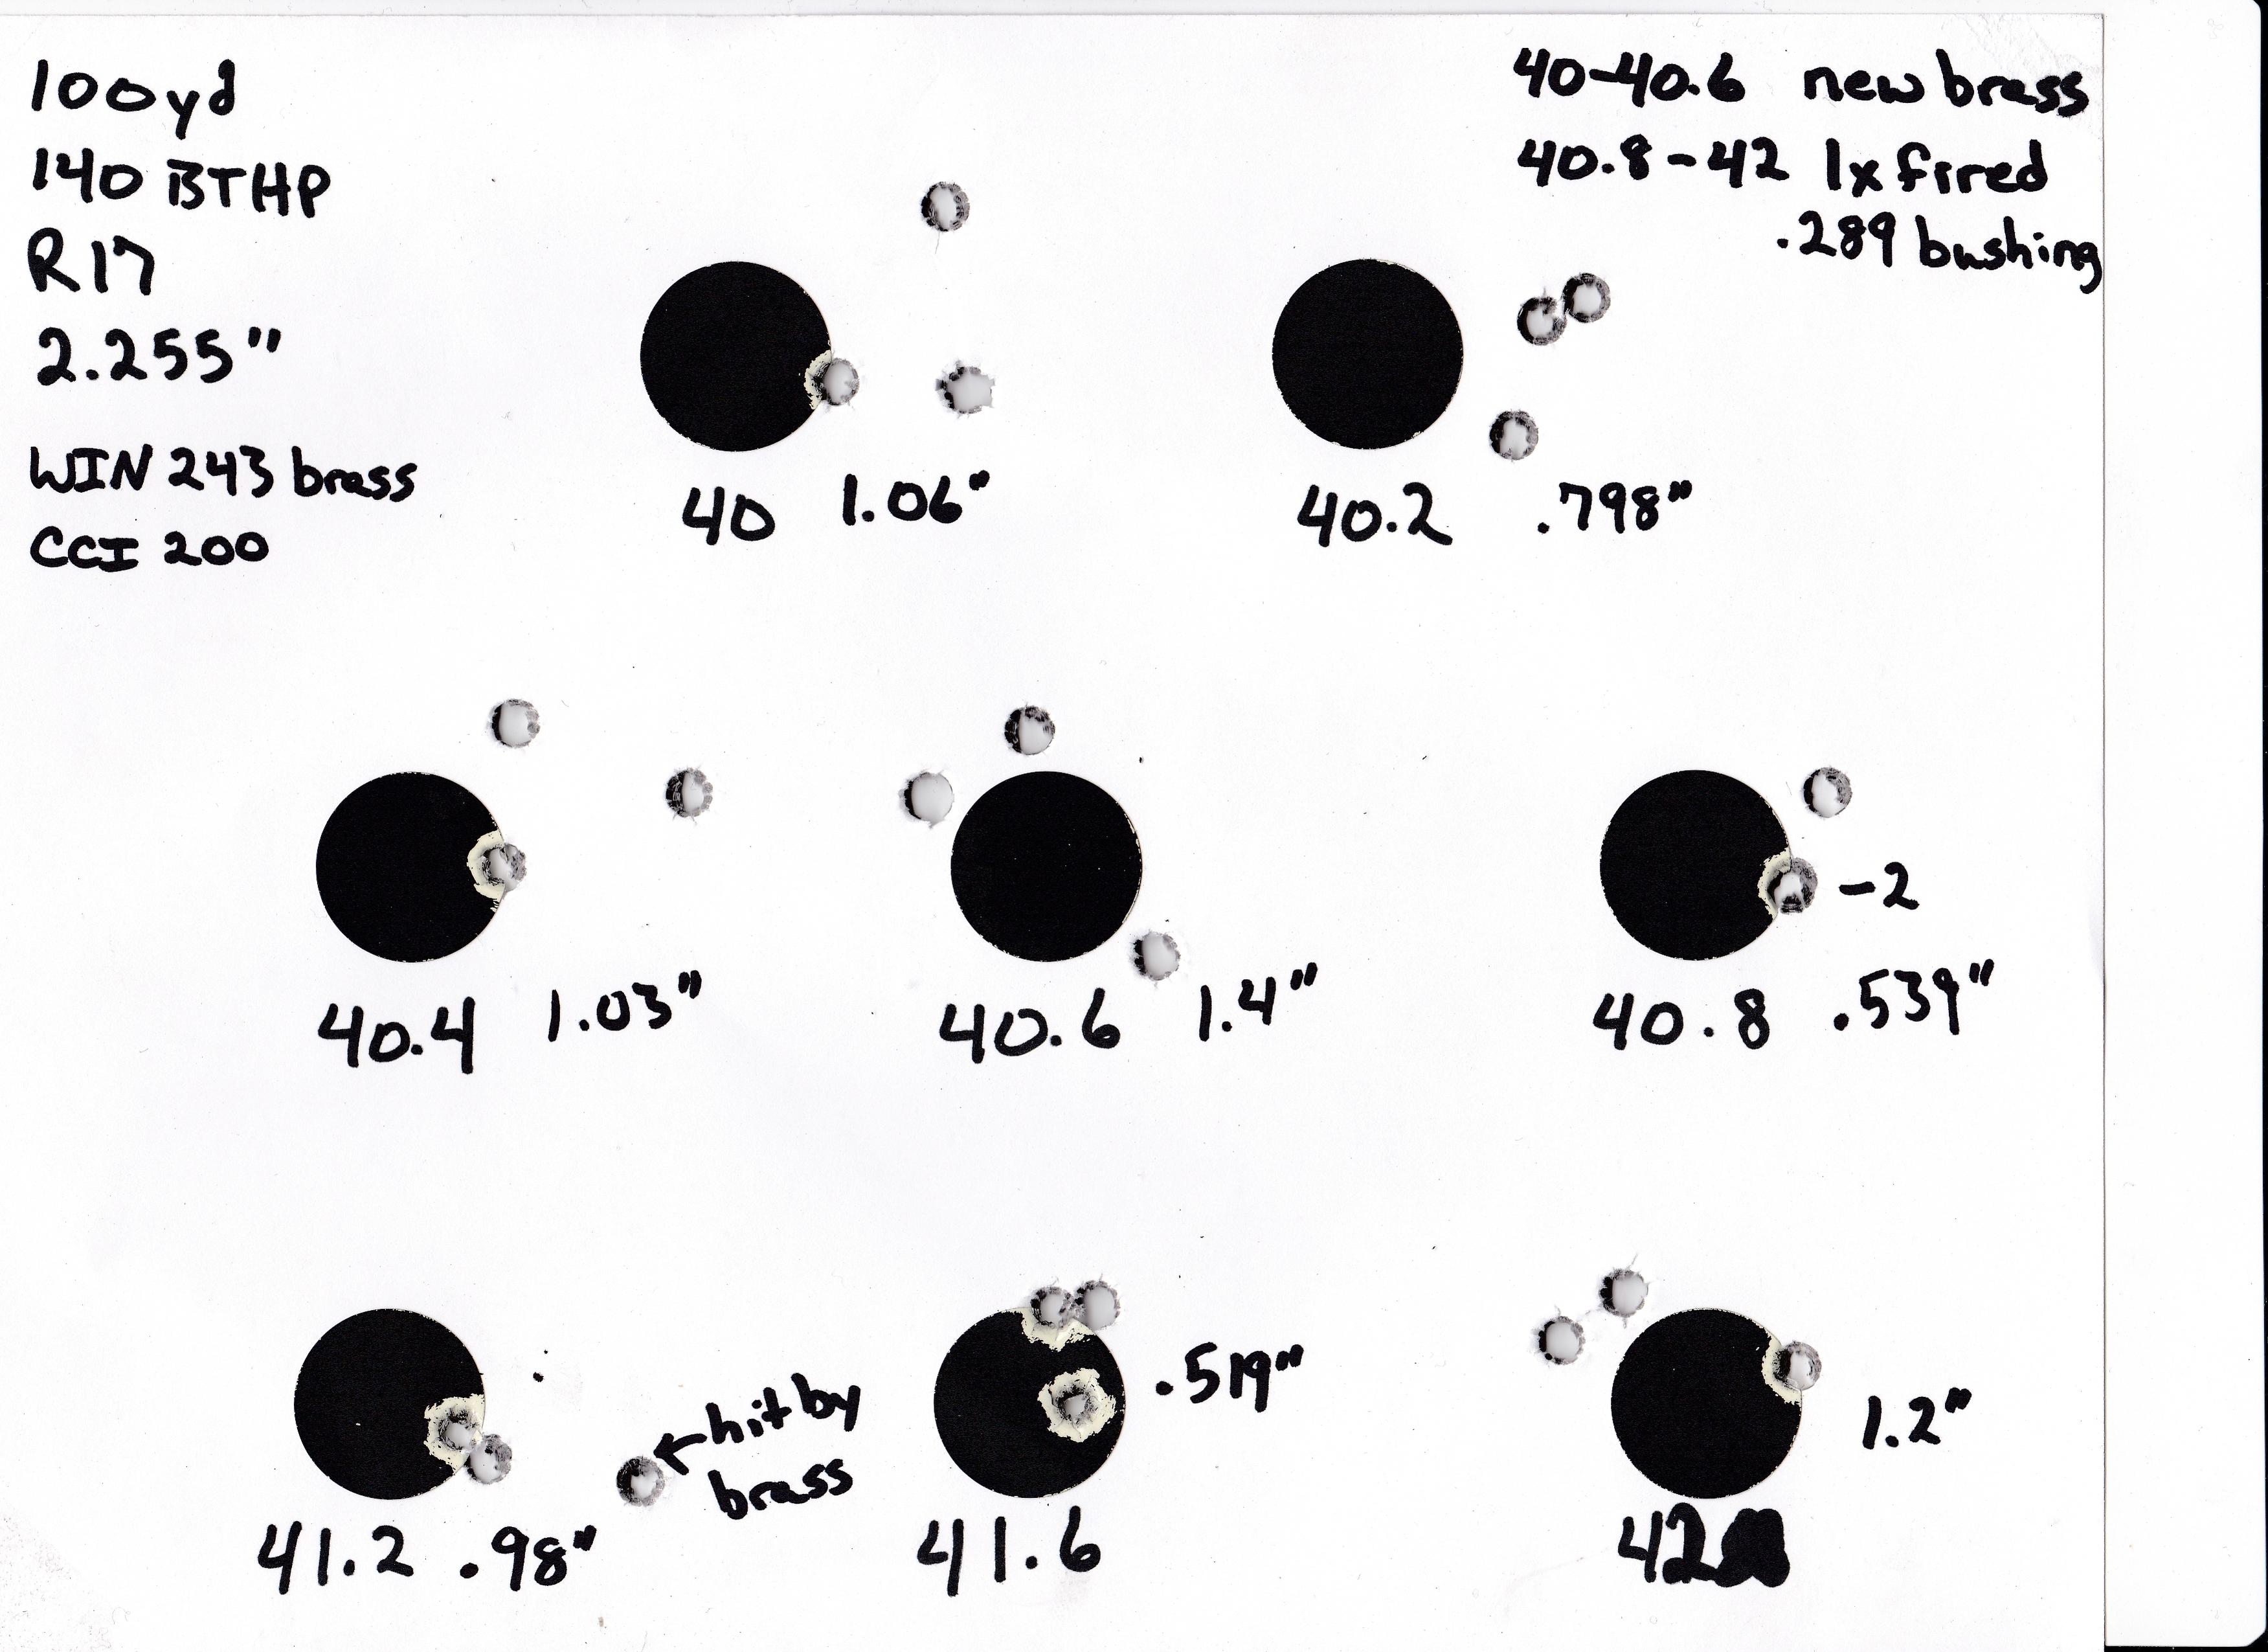 100yd
140 BTHP
R17
2.255"
WIN 243 brass
CCI 200
40-40.6 new brass
40.8-42 1x fired
.289 bushing
40 1.06"
40.2 .798"
40.4 1.03"
40.6 1.4"
-2
40.8 .539"
←hit by
brass
41.2 .98"
.519"
41.6
1.2"
42